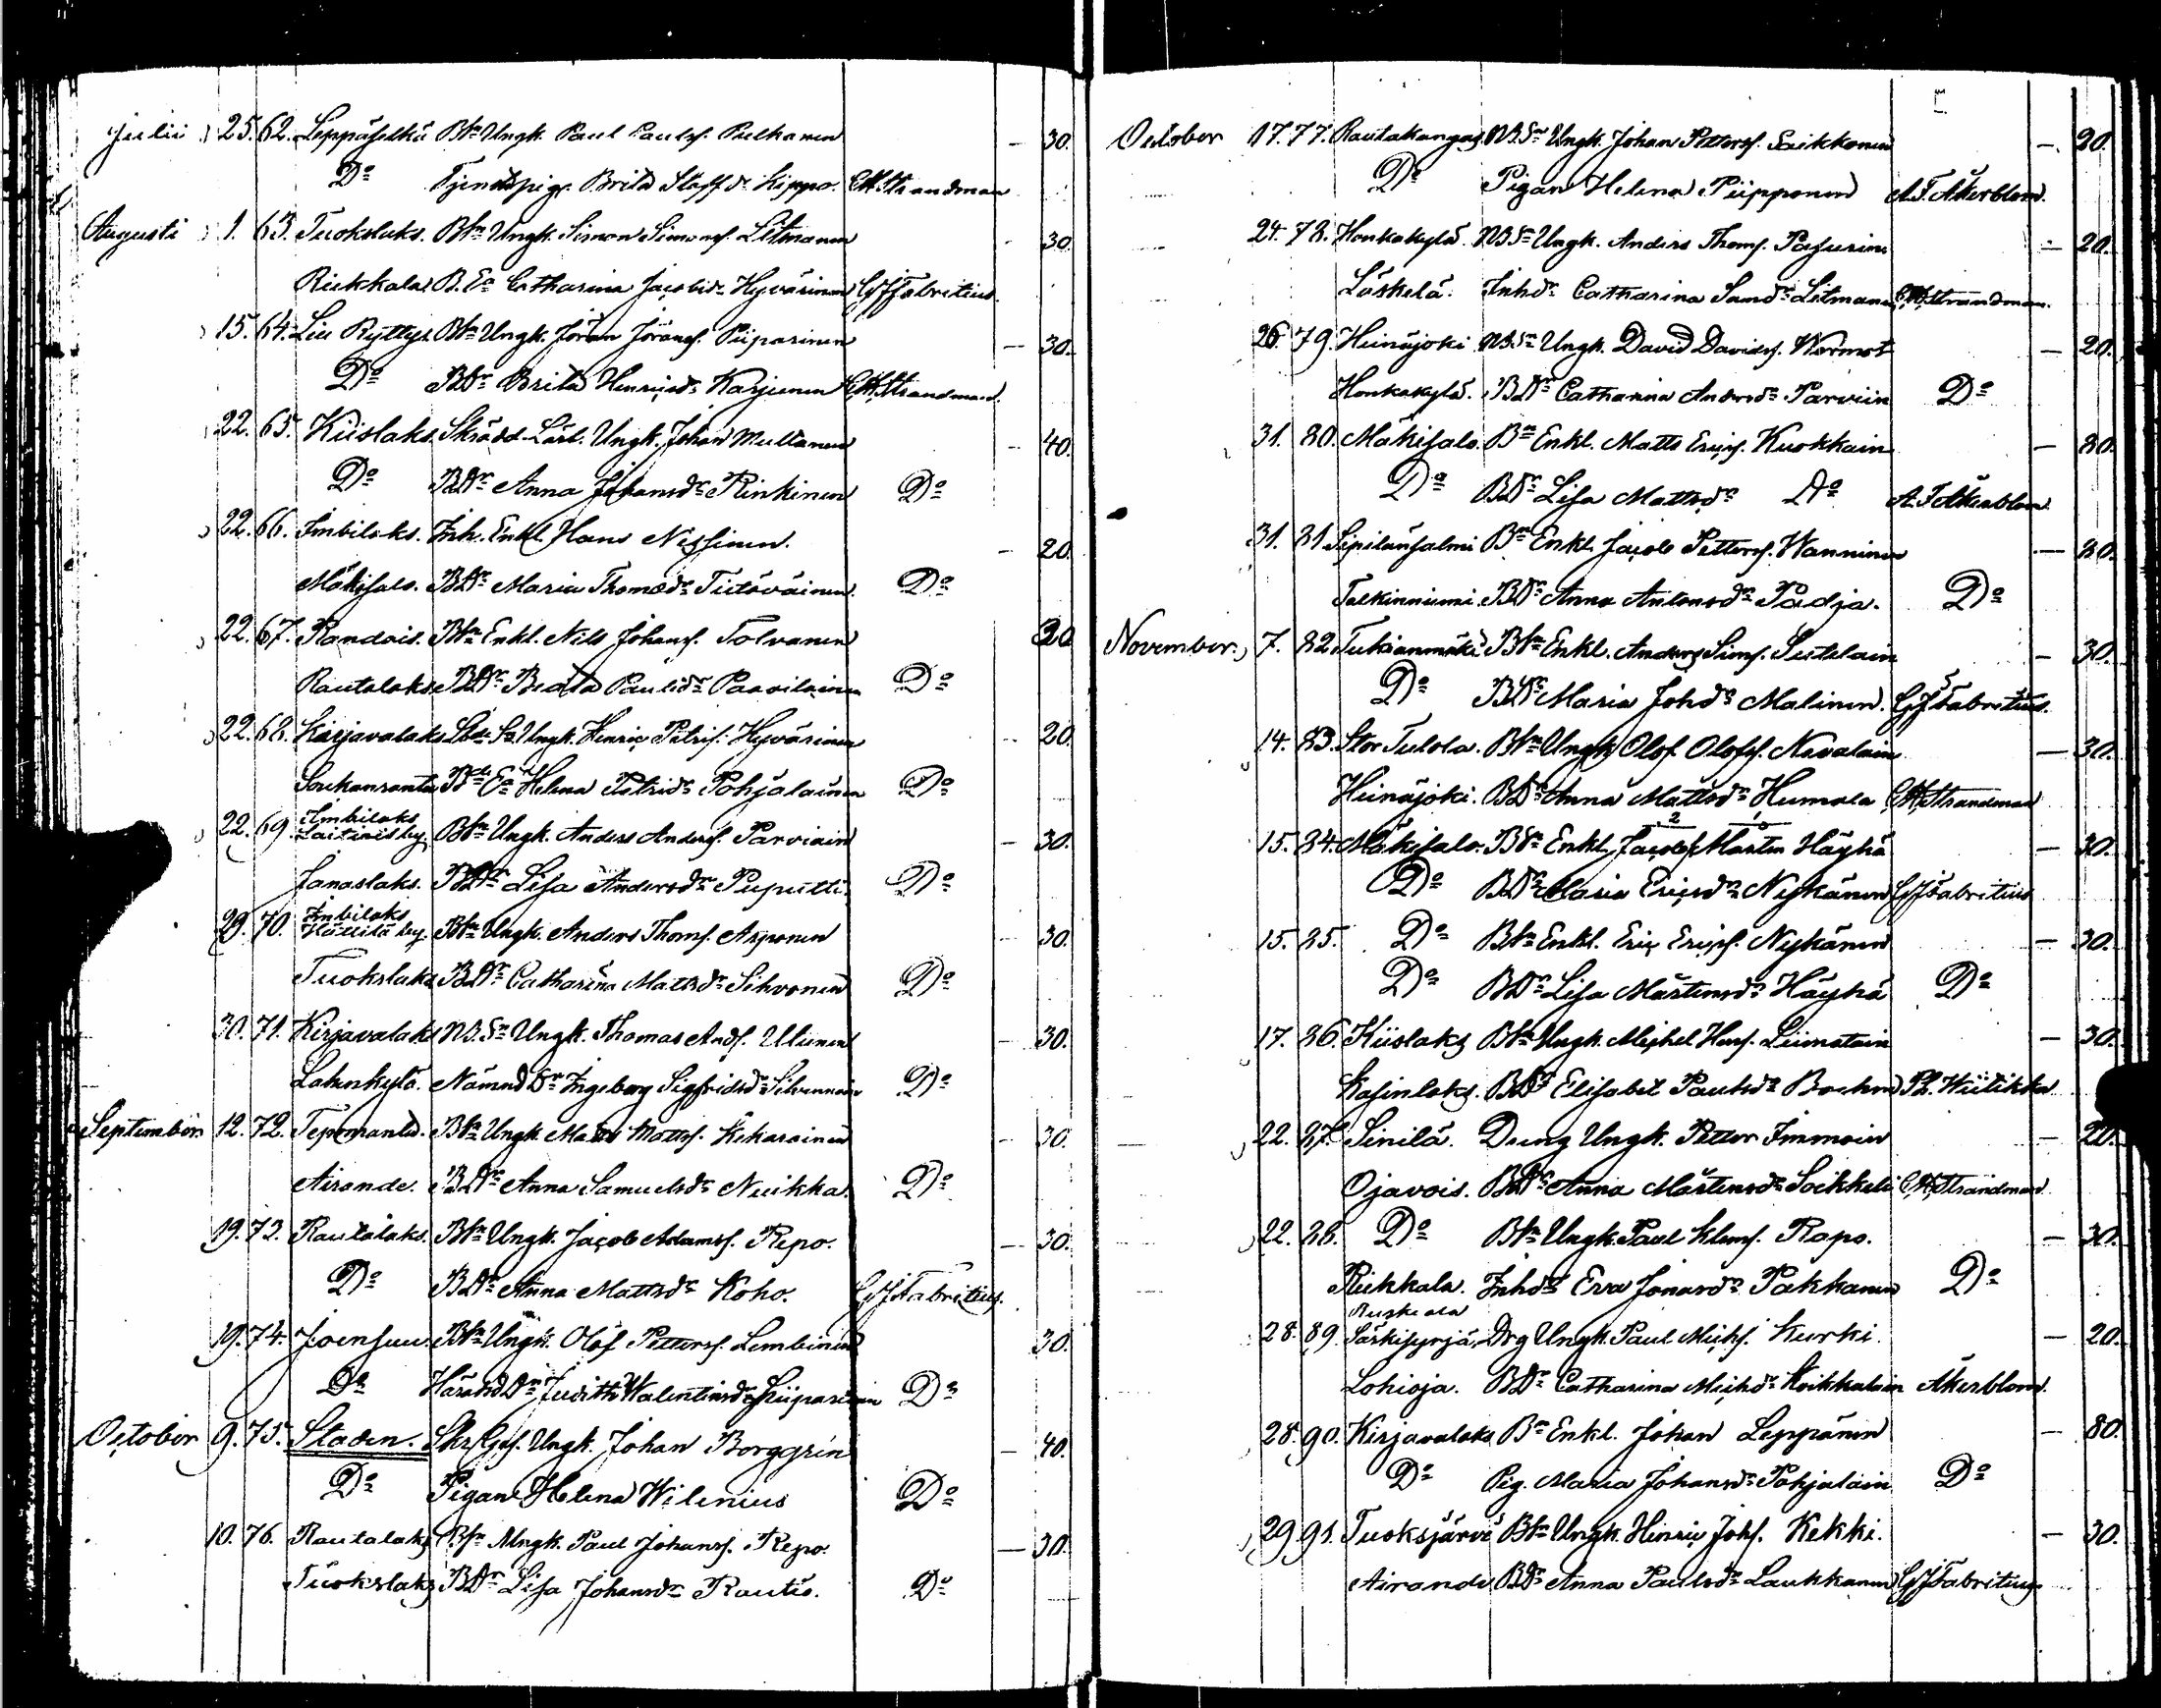 Julii 25. 62. Leppäselkä Bn Ungk. Paul Paulss. Pulkanen — 30.
Do Tjenstepig. Brita Staffdr Kippo. CM Strandman
Augusti 1. 63. Tuokslaks. Bsn Ungk. Simon Simonss. Litmanen 30.
Riekkala B. Ea Catharina Jacobsdr Hyvärinen GJ Fabritius.
15. 64. Lill Ryttys Bsn Ungk. Jöran Jöranss. Piiparinen — 30.
Do BDr Brita Henricsdr Karjunen CM Strandman.
22. 65. Kiislaks. Skrädd. Lärl. Ungk. Johan Mullanen — 40.
Do BDr Anna Johansdr Rinkinen Do
22. 66. Imbilaks. Inh. Enkl. Hans Nissinen. — 20.
Mäkisalo. BDr Maria Thomædr Tiitöväinen. Do
22. 67. Randois. Bsn Enkl. Nils Johanss. Tolvanen 20
Rautalaks BDr Beata Paulsdr Paavilainen Do
22. 68. Kirjavalaks Ungk. Henric Petriss. Hyvärinen — 20.
Soukanranta Ea Helena Petridr Pohjalainen Do
22. 69. Imbilaks Laitiois by. Bsn Ungk. Anders Anderss. Parviain — 30.
Janaslaks. BDr Lisa Andersdr Puputti. Do
29. 70. Imbilaks Hällilä by. Bsn Ungk. Anders Thoms. Asponen — 30.
Tuokslaks BDr Catharina Matsdr Sihvonen Do
30. 71. Kirjavalaks NB. Sn Ungk. Thomas Ands. Ulinen — 30.
Lahenkylä. Nämnd Dr Ingeborg Sigfridsdr Silvennoin Do
September 12. 72. Bsn Ungk. Matts Mattss. Kekarainen — 30.
Airande. BDr Anna Samuelsdr Nuikka. Do
19. 73. Rautalaks. Bsn Ungk. Jacob Adamss. Repo. — 30.
Do BDr Anna Mattsdr Koho. GJ Fabritius.
19. 74. Joensuu. Bsn Ungk. Olof Petterss. Lembinen 30.
Do Härads Dn Judith Walentinsdr Piiparinen Do
October 9. 75. Staden. Skr. Ges. Ungk. Johan Borggrén — 40.
Do Pigan Helena Wilenius Do
10. 76. Rautalaks Bsn Ungk. Paul Johanss. Repo. — 30.
Tuokslaks BDr Lisa Johansdr Rautio. Do
October 17. 77. Rautakangas NB. Sn Ungk. Johan Petterss. Saikkonen — 20.
Do Pigan Helena Piipponen A.F. Åkerblom.
24. 78. Honkakylä. NB Sn Ungk. Anders Thoms. Pasurinen — 20.
Läskelä. Inhdr Catharina Samdr Litmanen CM Strandman.
26. 79. Heinäjoki NB. Sn Ungk. David Davidss. Wornost — 20.
Honkakylä. BDr Catharina Andersdr Parviin Do
31. 80. Mäkisalo. Bn Enkl. Matts Ericss. Kuokkain — 80.
Do BDr Lisa Mattsdr Do A.F. Åkerblom
31. 81. Sipilänsalmi Bn Enkl. Jacob Petterss. Wanninen — 80.
Talkinniemi BDr Anna Antonsdr Padja. Do
November. 7. 82. Tukianmäki Bsn Enkl. Anders Sims. Sutelain — 30.
Do BDr Maria Johdr Malinen. GJ Fabritius.
14. 83. Stor Tulola. Bsn Ungk. Olof Olofss. Navalain — 30.
Heinäjoki. BDr Anna Mattsdr Humala CM Strandman
15. 84. Mäkisalo. Bsn Enkl. Jacob Mårten Häyhä — 30.
Do BDr Maria Ericsdr Nykänen GJ Fabritius
15. 85. Do Bsn Enkl. Eric Ericss. Nykänen — 30.
Do BDr Lisa Mårtensdr Häyhä Do
17. 86. Kiislaks Bsn Ungk. Michel Hans. Liimatain — 30.
Kasinlaks. BDr Elisabet Paulsdr Bochm Wiitikka
22. 87. Sinilä. Dreng Ungk. Petter Immoin — 20.
Ojavois. BDr Anna Mårtensdr Soikkeli CM Strandman
22. 88. Do Bsn Ungk. Paul Klems. Rapo. — 30.
Riekkala. Inhdr Eva Jonasdr Pakkanen Do
Ruskeala
28. 89. Särkisyrjä Drg Ungk. Paul Michs. Kurki. — 20.
Lohioja. BDr Catharina Michdr Koikkalain Åkerblom.
28. 90. Kirjavalaks Bn Enkl. Johan Leppänen — 80.
Do Pig. Maria Johansdr Pohjalain Do
29. 91. Tuoksjärvi Bsn Ungk. Hinric Johs. Kekki. — 30.
Airande BDr Anna Paulsdr Laukkanen GJ Fabritius